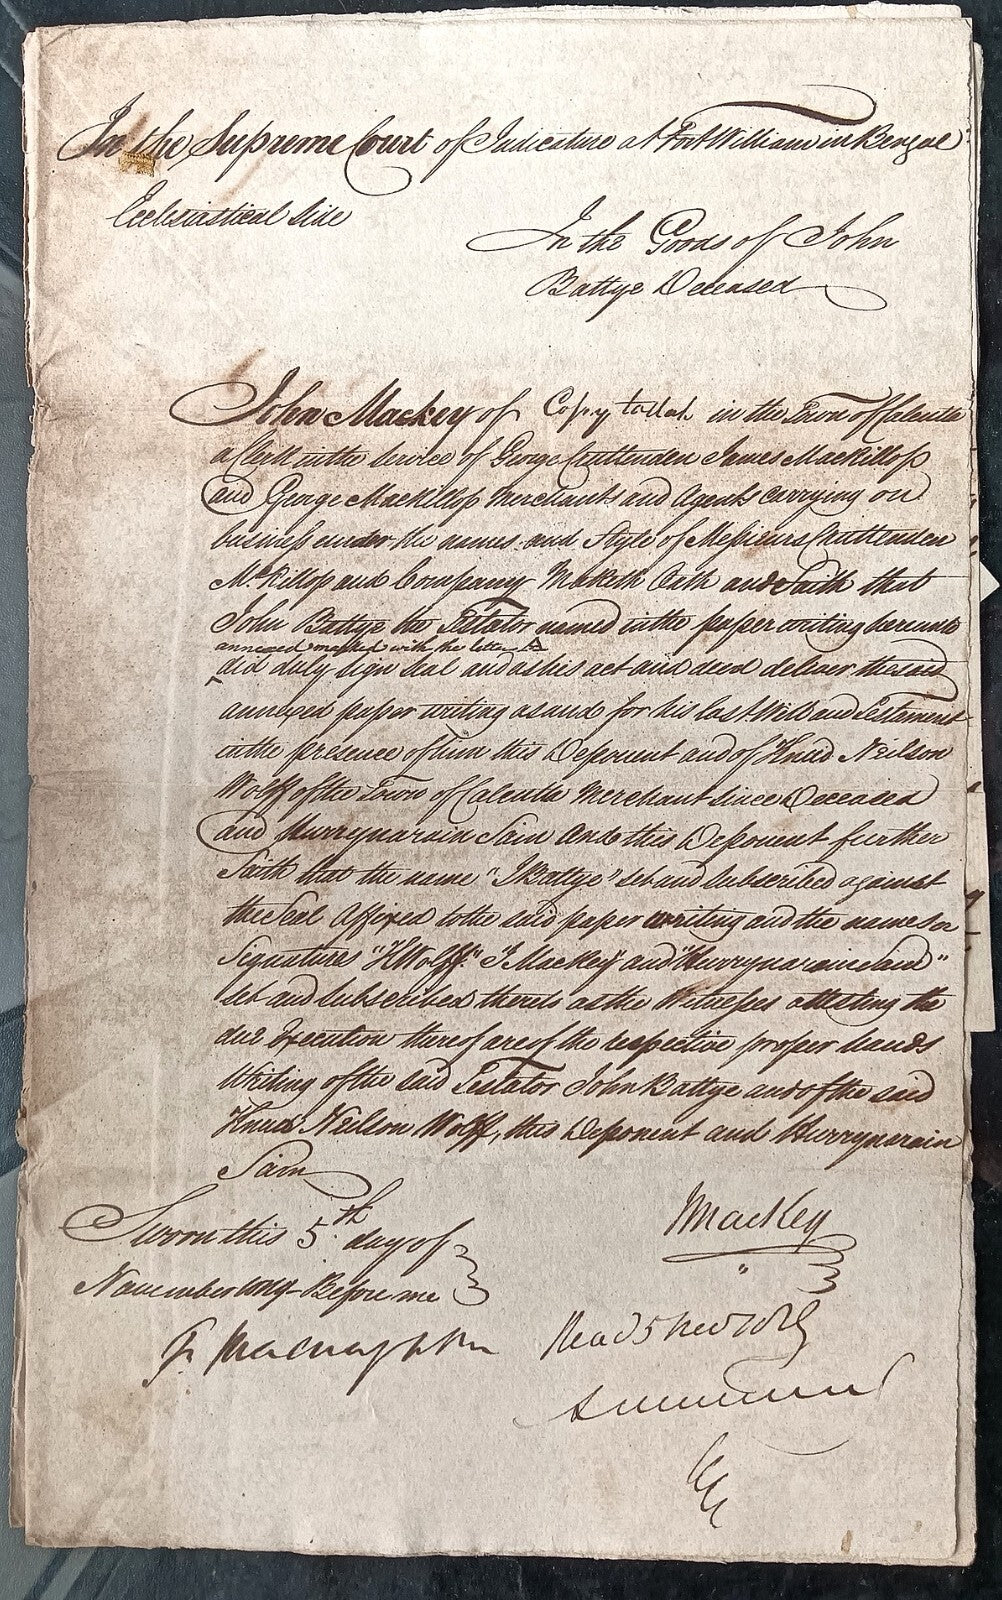 In the Supreme Court of Judicature at Fort William in Bengal
Ecclesiastical Side
In the Goods of John
Battye Deceased
John Mackey of Copy tollah in the Town of Calcutta
a Clerk in the Service of George Cruttenden James Mackillop
and George Mackillop Merchants and Agents carrying on
business under the names and Style of Messieurs Cruttenden
McKillop and Company Maketh Oath and Saith that
John Battye the Testator named in the paper writing hereunto
annexed marked with the letter A
did duly sign seal and as his act and deed deliver the said
annexed paper writing as and for his last Will and Testament
in the presence of him this Deponent and of Knud Neilson
Wolff of the Town of Calcutta Merchant since Deceased
and Hurrynarain Sain And this Deponent further
Saith that the name "J Battye" set and subscribed against
the Seal Affixed to the said paper writing and the names or
Signatures "K Wolff" "J Mackey" and "Hurrynarain Sain"
set and subscribed thereto as the Witnesses attesting the
due Execution thereof are of the respective proper hands
Writing of the said Testator John Battye and of the said
Knud Neilson Wolff, this Deponent and Hurrynarain
Sain
JMackey
Sworn this 5th day of
November Before me
F. Macnaghten
Read 5 Nov